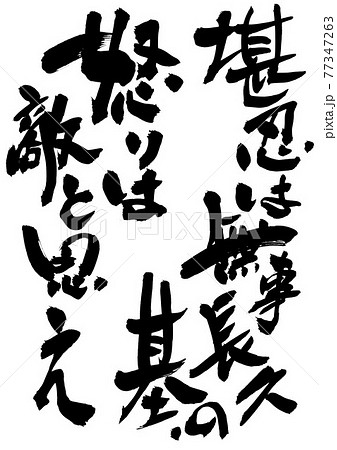 堪忍は無事長久の
基
怒りは
敵と思え
PIXTA
pixta.jp - 77347263